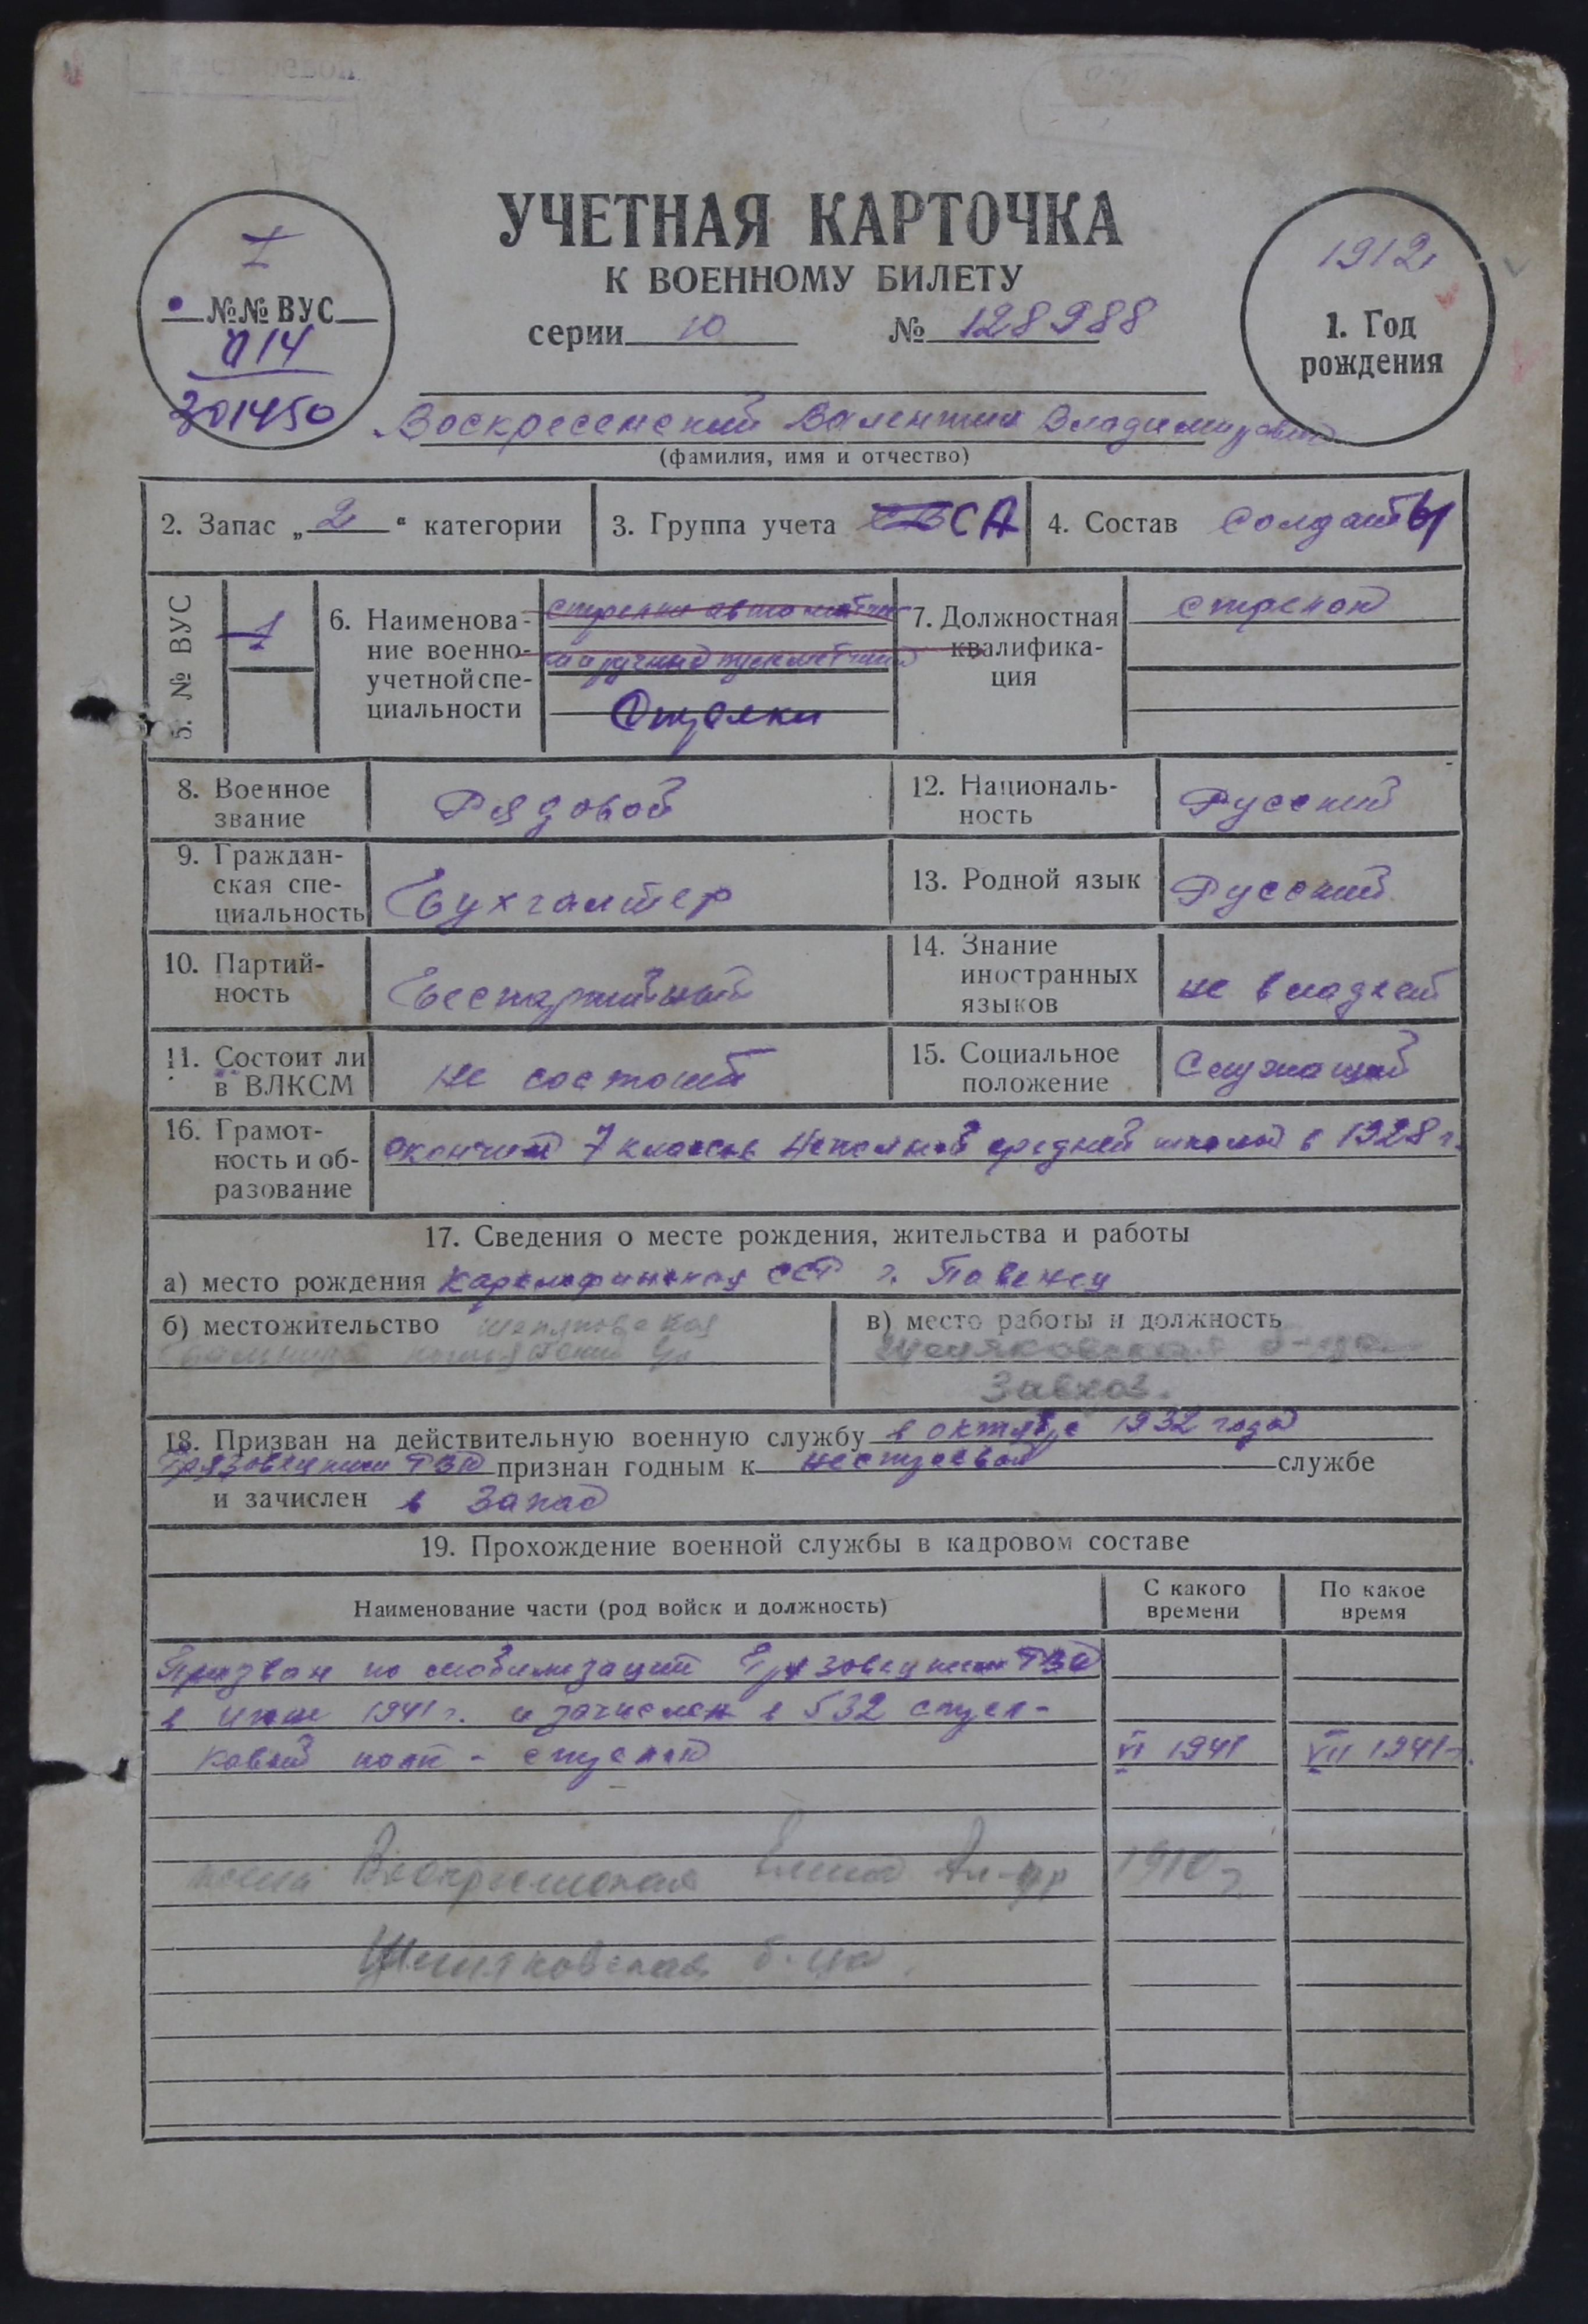 УЧЕТНАЯ КАРТОЧКА
К ВОЕННОМУ БИЛЕТУ
серии 10 № 128988
I
№№ ВУС
014
301450
1912
1. Год
рождения
Воскресенский Валентин Владимирович
(фамилия, имя и отчество)
2. Запас „2“ категории
3. Группа учета СА
4. Состав солдаты
5. № ВУС
1
6. Наименова-
ние военно-
учетной спе-
циальности
стрелки автоматчики
и ручные пулеметчики
Стрелки
7. Должностная
квалифика-
ция
стрелок
8. Военное
звание
Рядовой
12. Националь-
ность
Русский
9. Граждан-
ская спе-
циальность
Бухгалтер
13. Родной язык
Русский
10. Партий-
ность
Беспартийный
14. Знание
иностранных
языков
не владеет
11. Состоит ли
в ВЛКСМ
не состоит
15. Социальное
положение
Служащий
16. Грамот-
ность и об-
разование
окончил 7 классов неполной средней школы в 1928 г.
17. Сведения о месте рождения, жительства и работы
а) место рождения Карелофинская ССР г. Повенец
б) местожительство
в) место работы и должность
Завхоз.
18. Призван на действительную военную службу в октябре 1932 года
Грязовецким РВК признан годным к нестроевой службе
и зачислен в запас
19. Прохождение военной службы в кадровом составе
Наименование части (род войск и должность)
С какого
времени
По какое
время
Призван по мобилизации Грязовецким РВК
в июне 1941 г. и зачислен в 532 стрел-
ковый полк - стрелок VI 1941 VII 1941 г.
жена Воскресенская 1910 г
б-ца